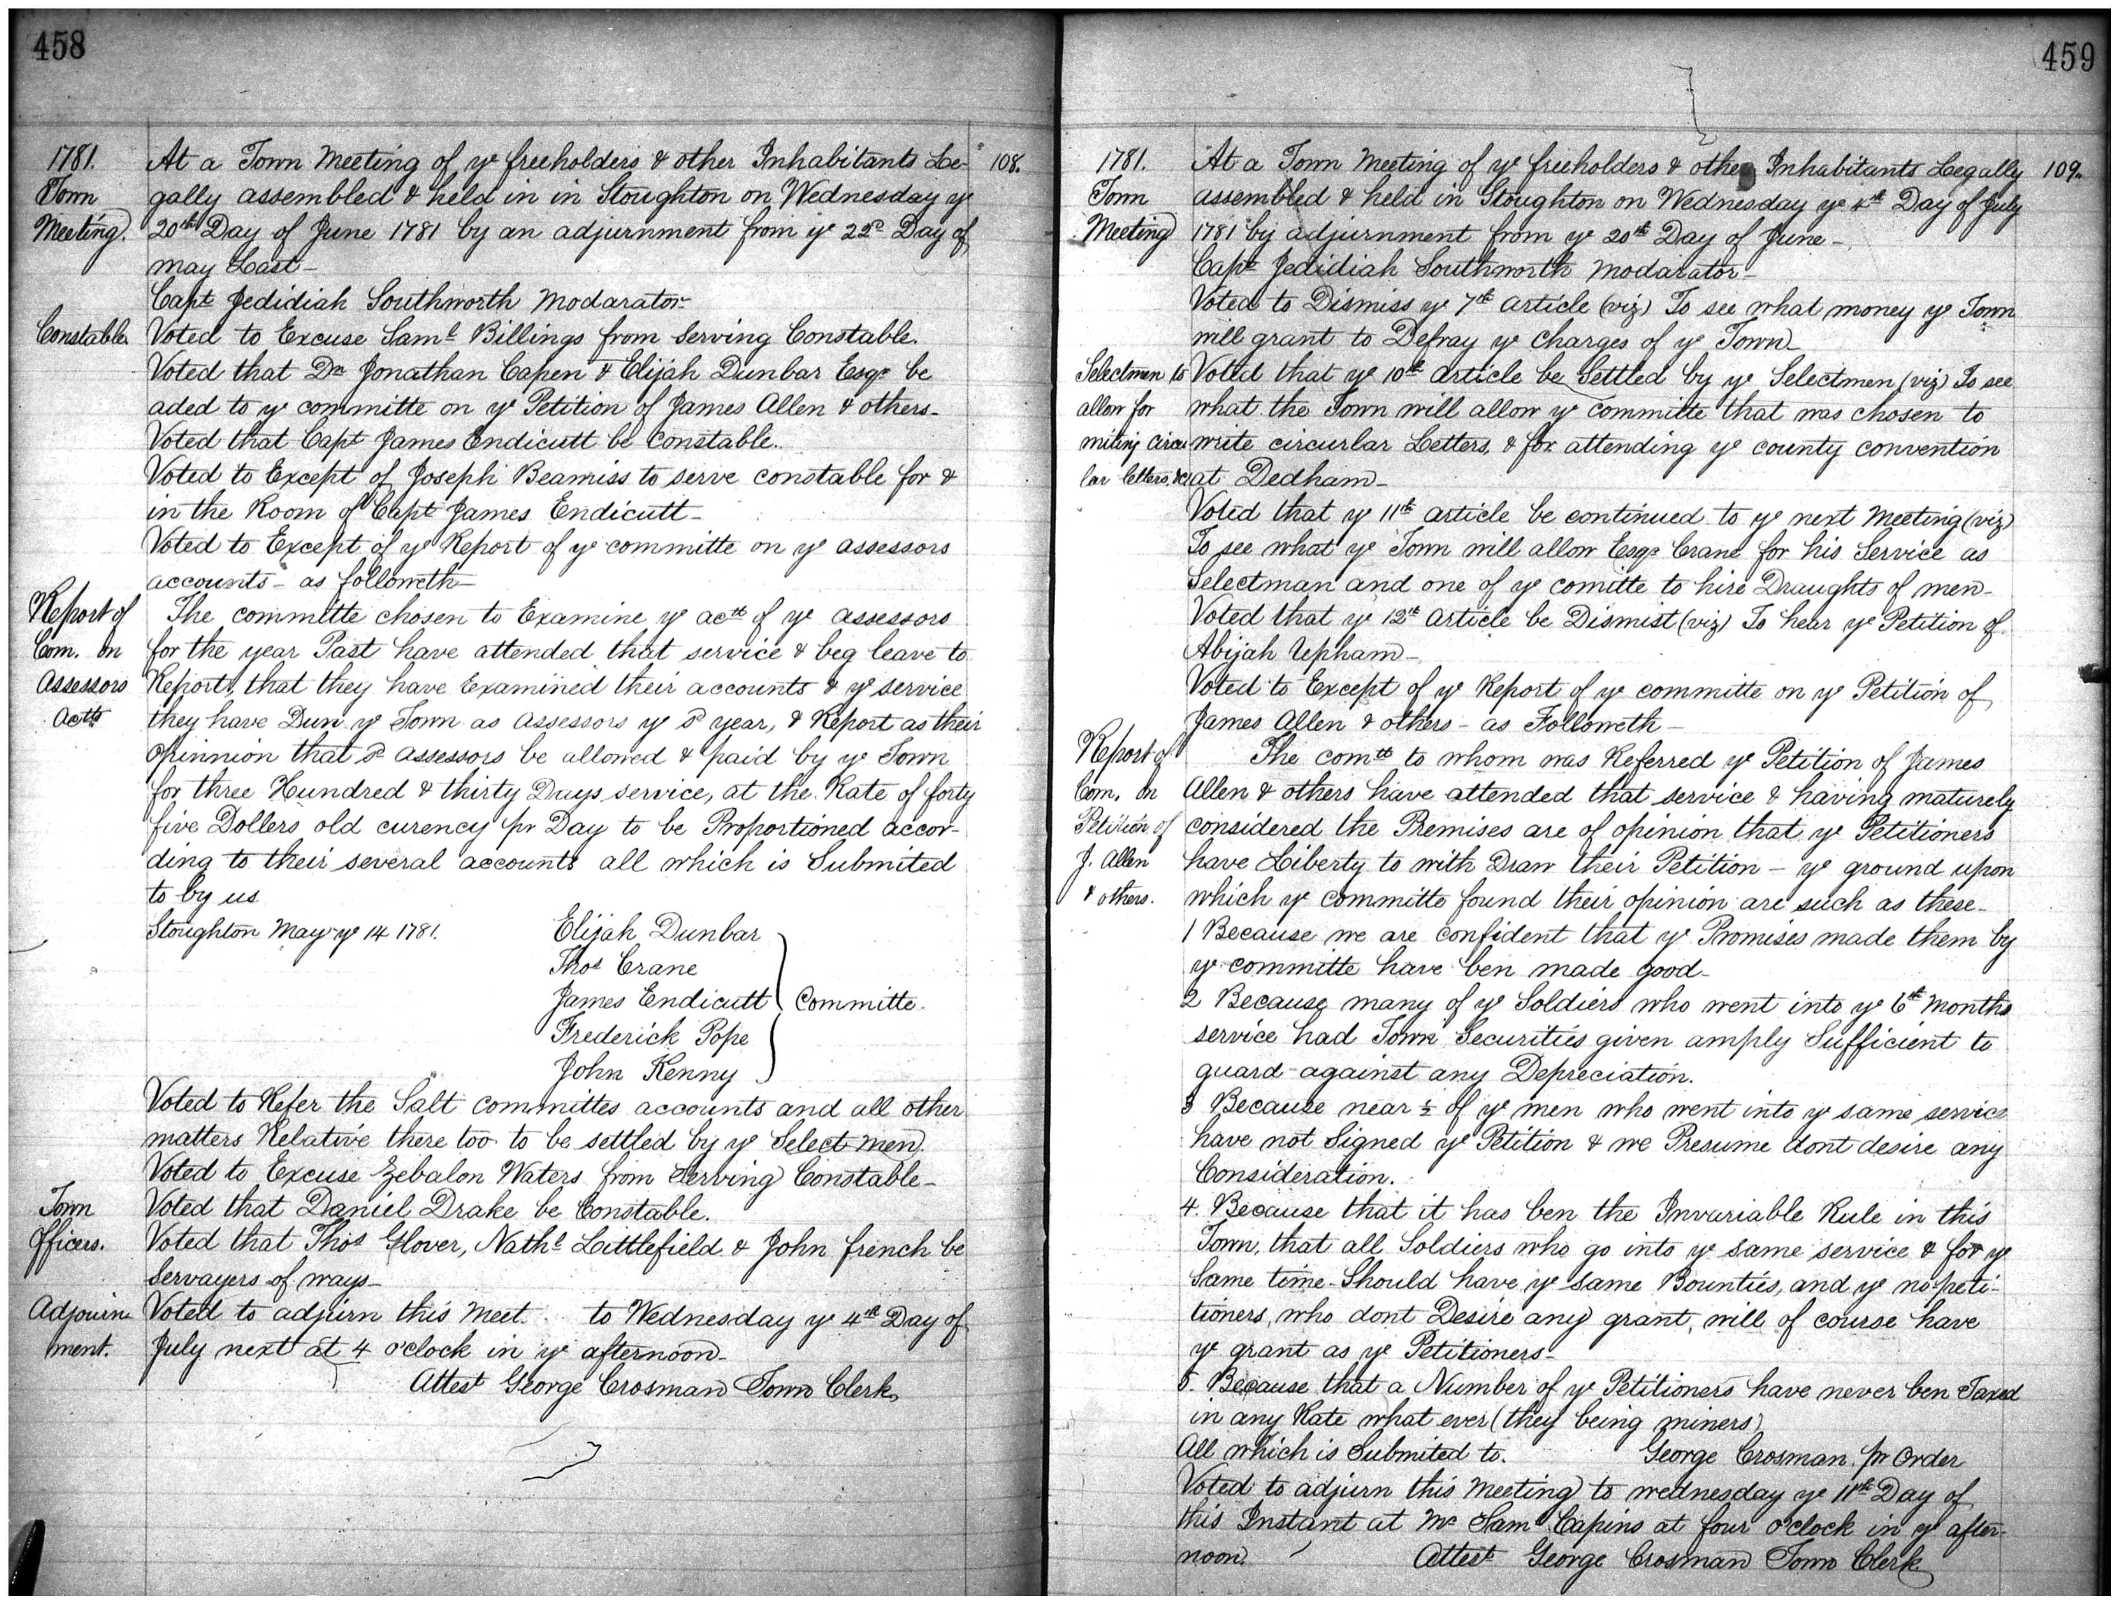 458
1781.
Town
Meeting.
At a Town Meeting of ye freeholders & other Inhabitants Le-
108.
gally assembled & held in in Stoughton on Wednesday ye
20th Day of June 1781 by an adjurnment from ye 22d Day of
may Last-
Capt Jedidiah Southworth Modarator-
Constable.
Voted to Excuse Saml Billings from Serving Constable.
Voted that Dn Jonathan Capen & Elijah Dunbar Esqr be
aded to ye committe on ye Petition of James Allen & others-
Voted that Capt James Endicutt be Constable.
Voted to Except of Joseph Beamiss to serve constable for &
in the Room of Capt James Endicutt-
Voted to Except of ye Report of ye committe on ye assessors
accounts- as followeth-
Report of
Com. on
Assessors
Actts
The committe chosen to Examine ye actt of ye assessors
for the year Past have attended that service & beg leave to
Report, that they have Examined their accounts & ye service
they have Dun ye Town as assessors ye sd year, & Report as their
opinnion that sd assessors be allowed & paid by ye Town
for three Hundred & thirty Days service, at the Rate of forty
five Dollers old curency pr Day to be Proportioned accor-
ding to their several accounts all which is Submited
to by us
Stoughton May ye 14 1781.
Elijah Dunbar
Thos Crane
James Endicutt
Committe.
Frederick Pope
John Kenny
Voted to Refer the Salt committes accounts and all other
matters Relative there too to be settled by ye Select men.
Voted to Excuse Zebalon Waters from Serving Constable-
Town
Officers.
Voted that Daniel Drake be Constable.
Voted that Thos Glover, Nathl Littlefield & John french be
Servayers of ways-
Adjourn
ment.
Voted to adjurn this Meet. to Wednesday ye 4th Day of
July next at 4 o'clock in ye afternoon-
Attest George Crosman Town Clerk,
459
1781.
Town
Meeting
At a Town Meeting of ye freeholders & other Inhabitants Legally
109.
assembled & held in Stoughton on Wednesday ye 4th Day of July
1781 by adjurnment from ye 20th Day of June-
Capt Jedidiah Southworth Modarator-
Voted to Dismiss ye 7th article (viz) To see what money ye Town
will grant to Defray ye Charges of ye Town-
Selectmen to
allow for
writing circu
lar letters, &c
Voted that ye 10th article be Settled by ye Selectmen (viz) To see
what the Town will allow ye committe that was chosen to
write circurlar Letters, & for attending ye county convention
at Dedham-
Voted that ye 11th article be continued to ye next Meeting (viz)
To see what ye Town will allow Esqr Crane for his Service as
Selectman and one of ye comitte to hire Draughts of men-
Voted that ye 12th article be Dismist (viz) To hear ye Petition of
Abijah Upham-
Voted to Except of ye Report of ye committe on ye Petition of
James Allen & others- as Followeth-
Report of
Com. on
Petition of
J. Allen
& others.
The comtt to whom was Referred ye Petition of James
Allen & others have attended that service & having maturely
considered the Premises are of opinion that ye Petitioners
have Liberty to with Draw their Petition- ye ground upon
which ye committe found their opinion are such as these-
1 Because we are confident that ye Promises made them by
ye committe have ben made good-
2 Because many of ye Soldiers who went into ye 6th months
service had Town Securities given amply Sufficient to
guard against any Depreciation.
3 Because near ½ of ye men who went into ye same service
have not Signed ye Petition & we Presume dont desire any
Consideration.
4. Because that it has ben the Invariable Rule in this
Town, that all Soldiers who go into ye same service & for ye
same time- Should have ye same Bounties, and ye no peti-
tioners, who dont Desire any grant, will of course have
ye grant as ye Petitioners-
5. Because that a Number of ye Petitioners have never ben Taxed
in any Rate what ever (they being miners)
All which is Submited to.
George Crosman pr Order
Voted to adjurn this Meeting to wednesday ye 11th Day of
this Instant at Mr Saml Capins at four o'clock in ye after-
noon.
Attest George Crosman Town Clerk